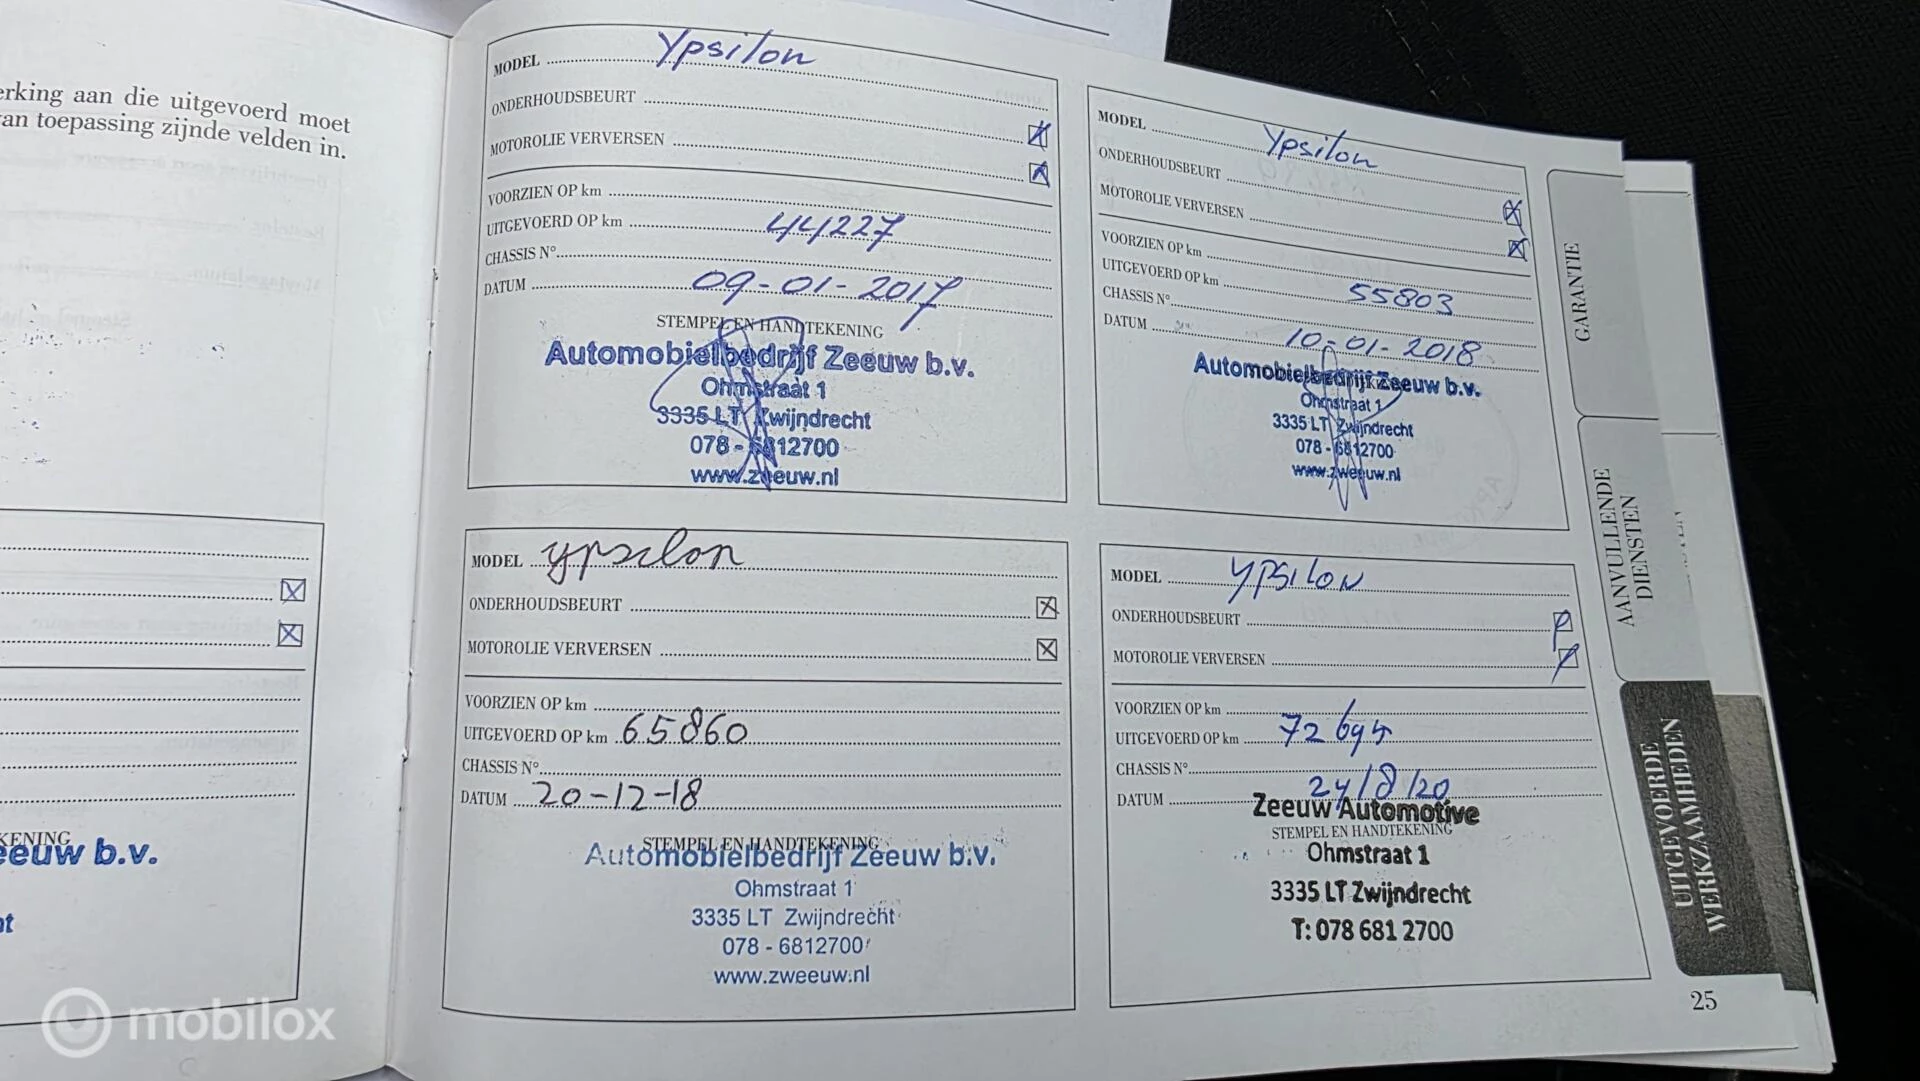 erking aan die uitgevoerd moet
van toepassing zijnde velden in.
KENING
eeuw b.v.
MODEL Ypsilon
ONDERHOUDSBEURT
MOTOROLIE VERVERSEN
VOORZIEN OP km
UITGEVOERD OP km 44227
CHASSIS N°
DATUM 09-01-2017
STEMPEL EN HANDTEKENING
Automobielbedrijf Zeeuw b.v.
Ohmstraat 1
3335 LT Zwijndrecht
078 - 6812700
www.zweeuw.nl
MODEL Ypsilon
ONDERHOUDSBEURT
MOTOROLIE VERVERSEN
VOORZIEN OP km
UITGEVOERD OP km 55803
CHASSIS N°
DATUM 10-01-2018
Automobielbedrijf Zeeuw b.v.
Ohmstraat 1
3335 LT Zwijndrecht
078 - 6812700
www.zweeuw.nl
MODEL ypsilon
ONDERHOUDSBEURT
MOTOROLIE VERVERSEN
VOORZIEN OP km
UITGEVOERD OP km 65860
CHASSIS N°
DATUM 20-12-18
STEMPEL EN HANDTEKENING
Automobielbedrijf Zeeuw b.v.
Ohmstraat 1
3335 LT Zwijndrecht
078 - 6812700
www.zweeuw.nl
MODEL YPSILON
ONDERHOUDSBEURT
MOTOROLIE VERVERSEN
VOORZIEN OP km
UITGEVOERD OP km
CHASSIS N°
DATUM 24/8/20
Zeeuw Automotive
STEMPEL EN HANDTEKENING
Ohmstraat 1
3335 LT Zwijndrecht
T: 078 681 2700
GARANTIE
AANVULLENDE
DIENSTEN
UITGEVOERDE
WERKZAAMHEDEN
25
mobilox